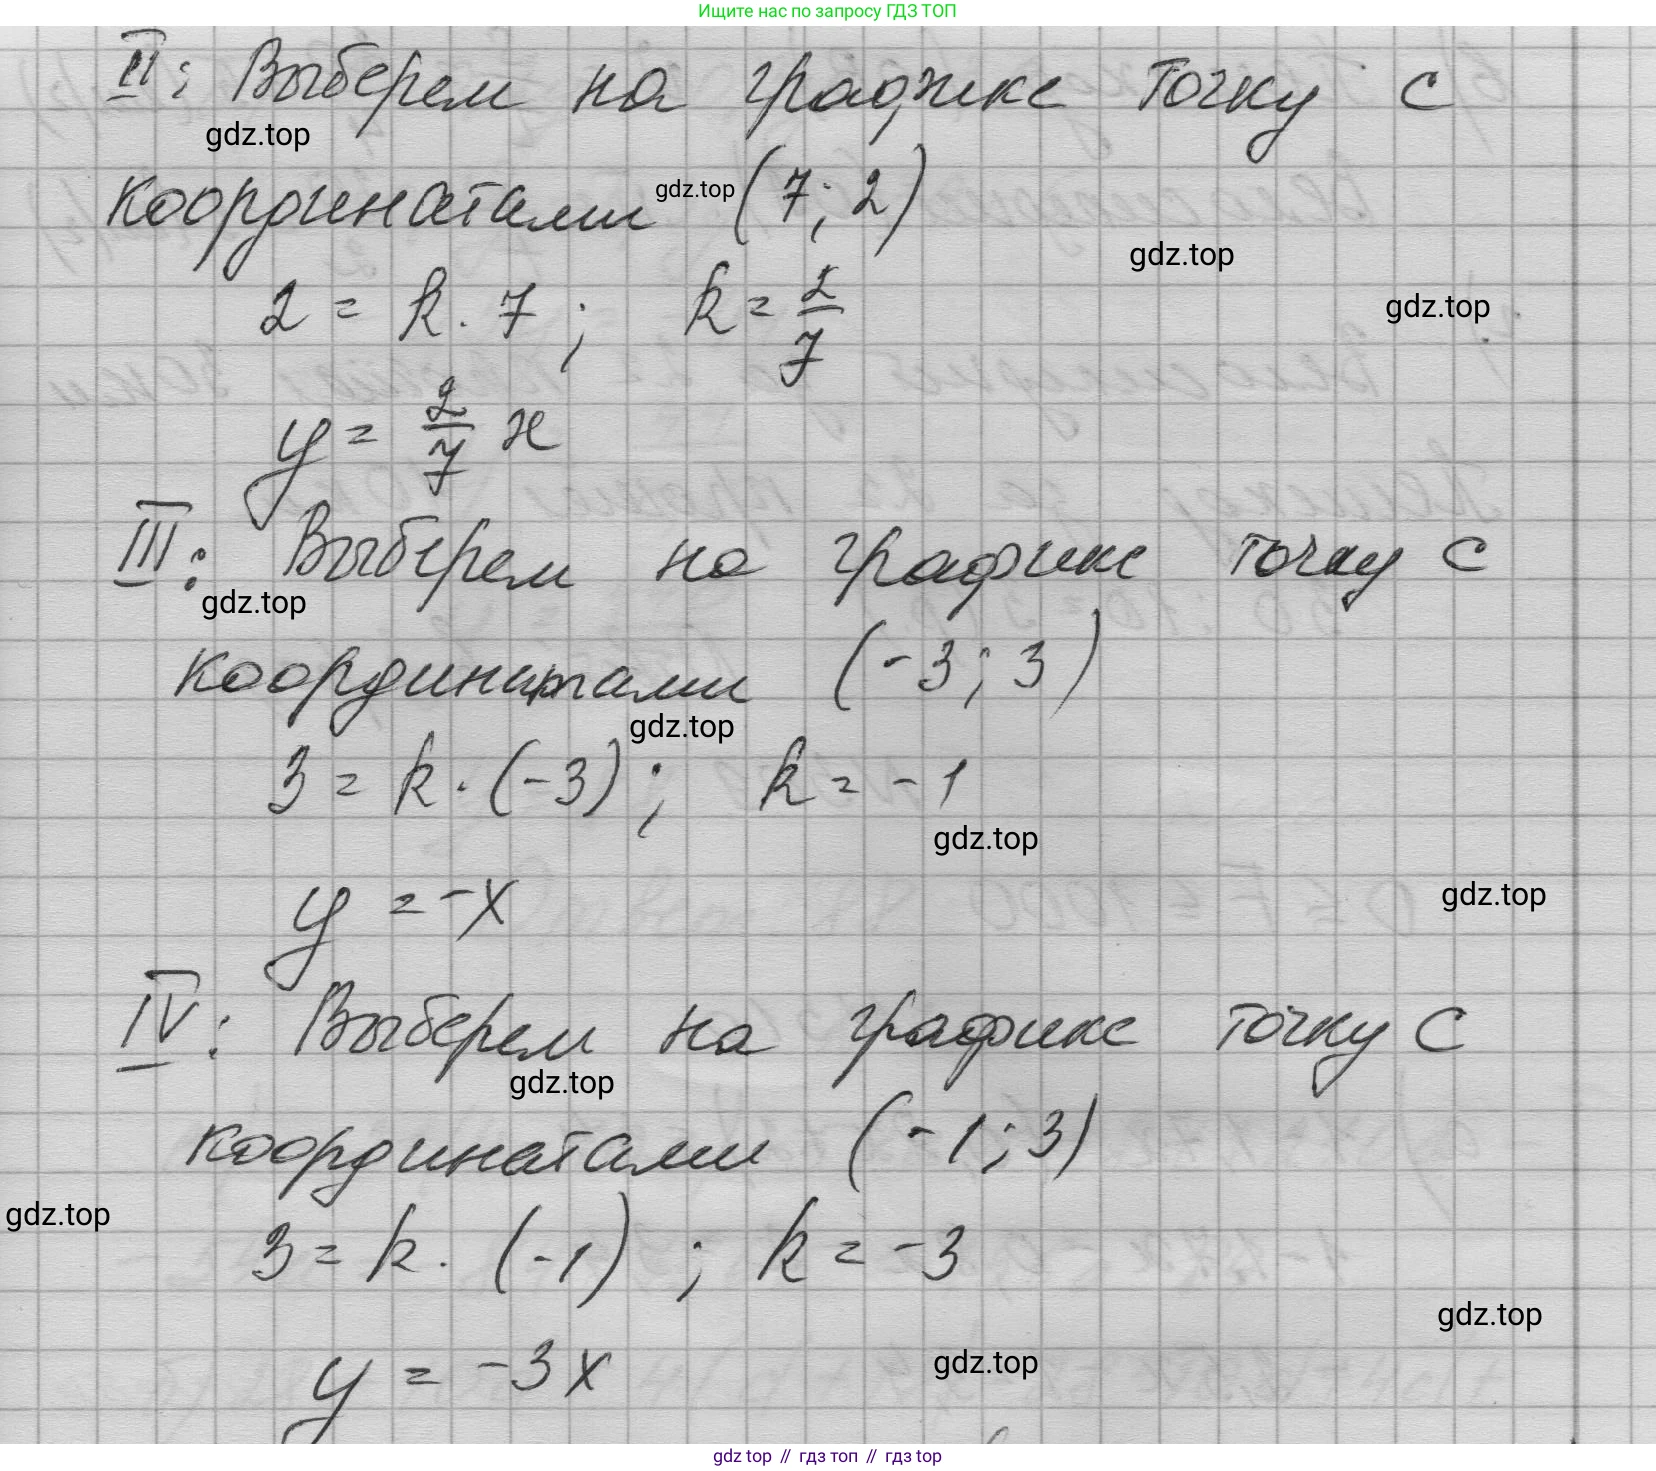 Ищите нас по запросу ГДЗ ТОП
II: Выберем на графике точку с
gdz.top
координатами gdz.top (7; 2)
gdz.top
2 = k · 7 ; k = 2/7
gdz.top
y = 2/7 x
III: Выберем на графике точку с
gdz.top
координатами (-3; 3)
gdz.top
3 = k · (-3) ; k = -1
gdz.top
y = -x
gdz.top
IV: Выберем на графике точку с
gdz.top
координатами (-1; 3)
gdz.top
3 = k · (-1) ; k = -3
gdz.top
y = -3x
gdz.top
gdz top // гдз топ // gdz top